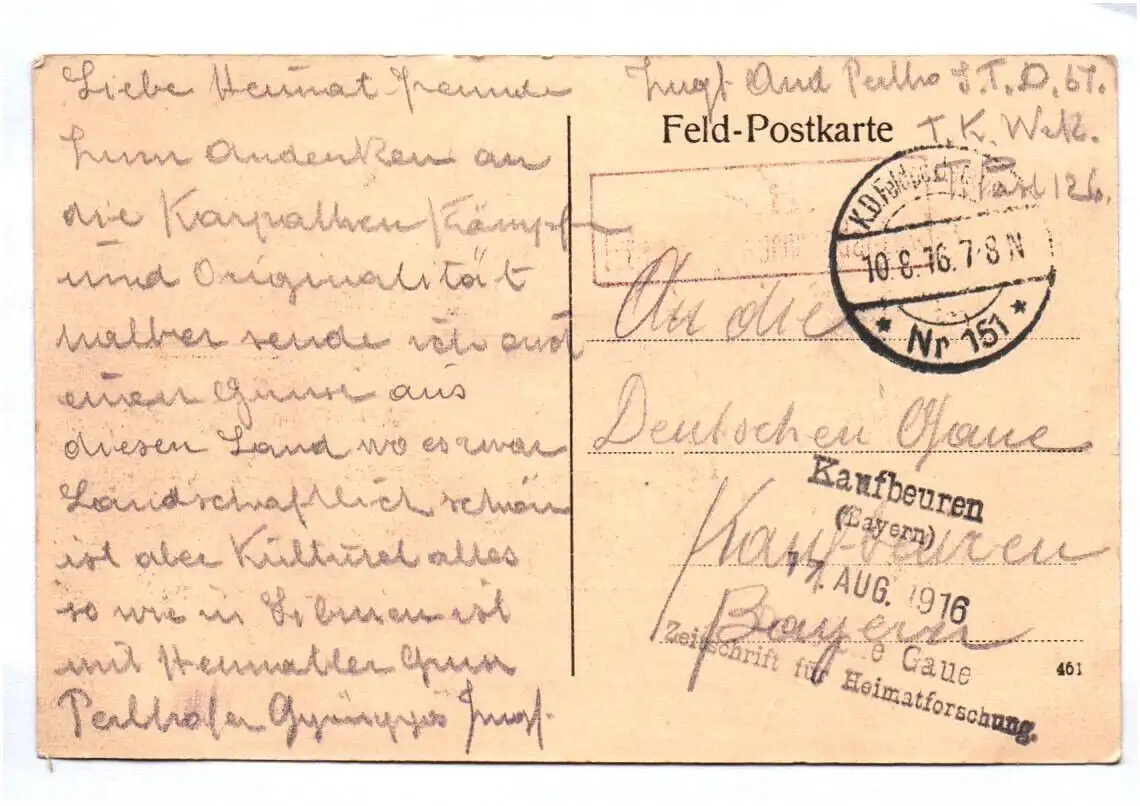 Liebe Heimat freunde
Zum Andenken an
die Karpathen Kämpfe
und Originalität
halber sende ich auch
einen Gruss aus
diesen Land wo es zwar
Landschaftlich schön
ist aber Kulturel alles
so wie in Sibirien ist
mit Heimatler Grus
Perlhofer Zugf.
Zugf. And Perlho S.T.D. 67.
Feld-Postkarte
T. K. Wek.
T. Post 126
K.D. Feldpost
10.8.16. 7-8 N
* Nr 151 *
An die
Deutschen Gaue
Kaufbeuren
(Bayern)
17. AUG. 1916
Kaufbeuren
Bayern
e Gaue
Zeitschrift für Heimatforschung.
461